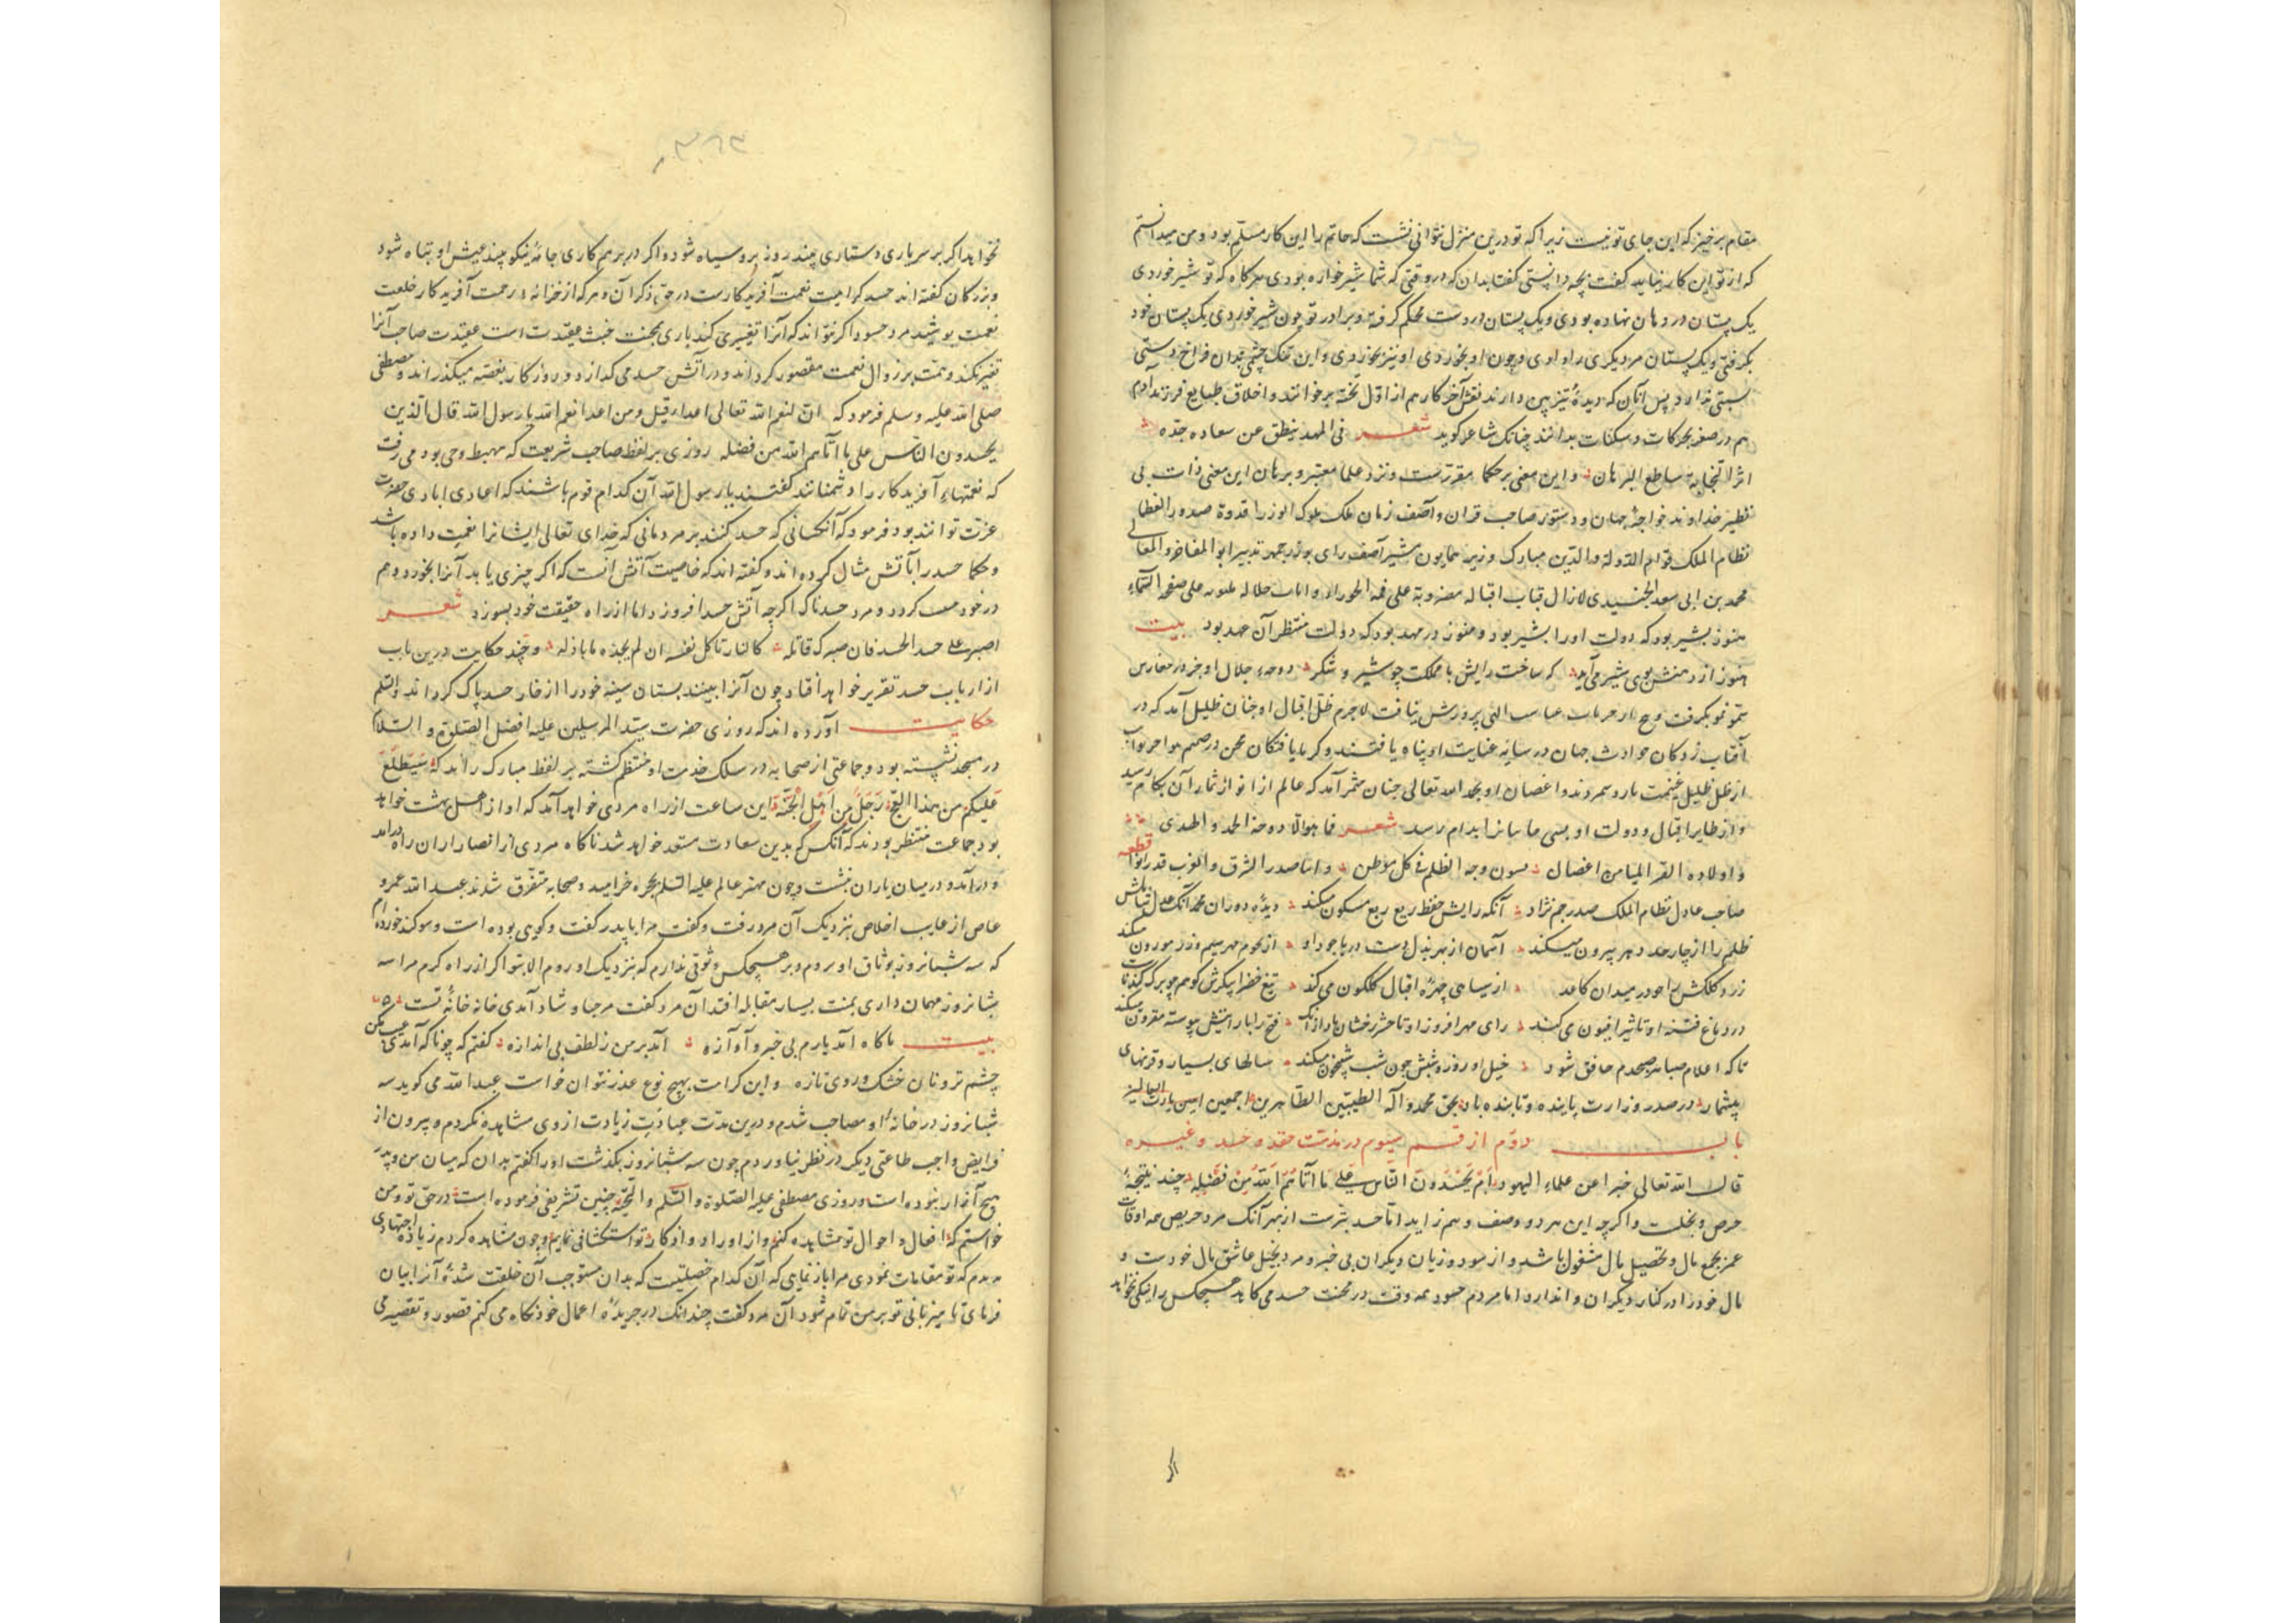 مقام برخیز که این جای تو نیست زیرا که تو درین منزل نتوانی نشست که حاتم را این کار مسلم بود و من میدانستم
که از تو این کار نیاید گفت بچه دانستی گفت بدان که در وقتی که شما شیرخواره بودی هرگاه که تو شیر خوردی
یک پستان در دهان نهاده بودی و یک پستان در دست محکم گرفته و برادر تو چون شیر خوردی یک پستان خود
بگرفتی و یک پستان مر دیگری را دادی و چون او بخوردی او نیز بخوردی و این تنک چشمی بدان فراخ دستی
نسبتی ندارد پس آنان که دیدهٔ تیزبین دارند نقش آخر کار هم از اول تخته برخوانند و اخلاق و طبایع فرزند آدم
هم در صغر بحرکات و سکنات بدانند چنانک شاعر گوید شعر فی المهد ینطق عن سعاده جده
اثر النجابة ساطع البرهان و این معنی بر حکما مقررست و نزد علما معتبر و برهان این معنی ذات بی
نظیر خداوند خواجهٔ جهان و دستور صاحب قران و آصف زمان ملک ملوک الوزرا قدوة صدور العظا
نظام الملک قوام الدولة والدین مبارک وزیر همایون مشیر آصف رای بوزرجمهر تدبیر ابو المفاخر والمعالی
محمد بن ابی سعد الجنیدی لازال قباب اقباله
هنوز بشیر بود که دولت او را بشیر بود و هنوز در مهد بود که دولت منتظر آن عهد بود بیت
هنوز از دهنش بوی شیر می‌آید که ساخت رایش با مملکت چو شیر و شکر دوحهٔ جلال او چو در مغارس
سمو نمو گرفت و الهی پرورش یافت لاجرم ظل اقبال او چنان ظلیل آمد که در
آفتاب زدگان حوادث جهان در سایه عنایت او پناه یافتند و گرما یافتگان محن در صمیم هواجر نوایب
از ظل ظلیل و اغصان او بحمد الله تعالی چنان مثمر آمد که عالم از انواع ثمار آن بکام رسید
و از طایر اقبال و دولت او بسی شعر فما هو الا دوحة المجد والهدی
و اولاده الغر المیامین اغصان وجه الظلم فی کل موطن صدر الشرق والغرب قطعه
صاحب عادل نظام الملک صدر جم نژاد آنکه رایش حفظ ربع ربع مسکون میکند دیدهٔ دوران
ظلم را از چار حد دهر بیرون میکند آسمان از بهر بذل دست دریا جود او از نجوم مهر سیم و زر موزون میکند
زرد کلکش از سیاهی چهرهٔ اقبال گلگون می‌کند تیغ خضرا پیکرش
در دماغ فتنه او تاثیر افیون می‌کند رای مهر افروز او تا حشر رخشان باد ازانک فتح را با رایتش پیوسته مقرون میکند
تا که اعلام صباح صبحدم خافق شود خیل او روز و شبش چون شب شبیخون میکند سالهای بسیار و قرنهای
بیشمار در صدر وزارت پاینده و تابنده باد بحق محمد و آله الطیبین الطاهرین اجمعین امین یا رب العالمین
باب دوم از قسم سیوم در مذمت حقد و حسد و غیره
قال الله تعالی خبرا عن علماء الیهود ام یحسدون الناس علی ما آتاهم الله من فضله چند نتیجهٔ
حرص و بخلست و اگرچه این هر دو وصف وهم زاید اما حسد بترست از بهر آنک مرد حریص همه اوقات
عمر بجمع مال و تحصیل مال مشغول باشد و از سود و زیان دیگران بی خبر و مرد بخیل عاشق مال خودست و
مال خود را در کنار دیگران روا ندارد اما مردم حسود همه وقت در محنت حسد می‌کاهد هیچکس را نیکی نخواهد
نخواهد اگر بر سر یاری دستاری بیند روز برو سیاه شود و اگر در بر همکاری جامهٔ نیکو بیند عیش او تباه شود
و بزرگان گفته‌اند حسد کراهیت نعمت آفریدگارست در حق دگران و هرکه از خزانهٔ رحمت آفریدگار خلعت
نعمت پوشید مرد حسود اگر نتواند که آنرا تغییری کند باری بمحنت خبث عقیدت است عقیدت صاحب آنرا
تغیر کند و همت بر زوال نعمت مقصور گرداند و در آتش حسد می‌گدازد و روزگار بغصه میگذراند و مصطفی
صلی الله علیه وسلم فرمود که ان لنعم الله تعالی اعداء قیل و من اعداء نعم الله یا رسول الله قال الذین
یحسدون الناس علی ما آتاهم الله من فضله روزی بر لفظ صاحب شریعت که مهبط وحی بود می‌رفت
که نعمتهای آفریدگار را دشمنانند گفتند یا رسول الله آن کدام قوم باشند که اعادی ایادی حضرت
عزت توانند بود فرمود که آنکسانی که حسد کنند بر مردمانی که خدای تعالی ایشانرا نعمت داده باشد
و حکما حسد را بآتش مثال کرده‌اند و گفته‌اند که خاصیت آتش آنست که اگر چیزی یابد آنرا بخورد و هم
در خود گردد و مرد حسدناک اگرچه آتش حسد افروزد اما از راه حقیقت خود بسوزد شعر
اصبر علی حسد الحسد فان صبرک قاتله کالنار تاکل نفسها ان لم یجده ما باذله و چند حکایت درین باب
از ارباب حسد تقریر خواهد افتاد چون آنرا ببینند بستان سینه خود را از خار حسد پاک گرداند والسلم
حکایت آورده‌اند که روزی حضرت سید المرسلین علیه افضل الصلوة و السلام
در مسجد نشسته بود و جماعتی از صحابه در سلک خدمت او منتظم گشته بر لفظ مبارک راند که سیطلع
علیکم من هذا الفج رجل من اهل الجنة این ساعت ازراه مردی خواهد آمد که او از اهل بهشت خواهد
بود جماعت منتظر بودند که آنکس که بدین سعادت مستعد خواهد شد ناگاه مردی از انصار از ان راه درآمد
و درآمد و در میان یاران نشست و چون مهتر عالم علیه السلم بحجره خرامید و صحابه متفرق شدند عبد الله عمرو
عاص از اخلاص بنزدیک آن مرد رفت و گفت مرا با پدر گفت و گویی بوده است و سوگند خورده‌ام
که سه شبانروز بوثاق او نروم و بر هیچکس وثوقی ندارم که بنزدیک او روم الا بتو اگر از راه کرم مرا سه
شبانروز مهمان داری بمنت بسیار مقابله افتد آن مرد گفت مرحبا و شاد آمدی خانه خانهٔ تست
بیت ناگاه آمد یارم بی خبر و آوازه آمد بر من ز لطف بی اندازه گفتم که چو ناگه آمدی عیب مکن
چشم تر و نان خشک و روی تازه و این کرامت بهیچ نوع عذر نتوان خواست عبد الله می‌گوید سه
شبانروز در خانهٔ او مصاحب شدم و درین مدت عبادت زیادت از وی مشاهده نکردم و بیرون از
فرایض واجب طاعتی دیگر در نظر نیاوردم چون سه شبانروز بگذشت او را گفتم بدان که میان من و پدر
هیچ آزار نبوده است و روزی مصطفی علیه الصلوة والسلم والتحیه چنین تشریفی فرموده است در حق تو و من
خواستم که افعال و احوال تو مشاهده کنم و از اوراد و اذکار تو استکشافی نمایم و چون مشاهده کردم زیاده اجتهادی
ندیدم که تو مقامات نمودی مرا باز نمای که آن کدام خصلتیست که بدان مستوجب آن خلعت شدهٔ آنرا بیان
فرمای تا میزبانی تو بر من تمام شود آن مرد گفت چندانک در جریدهٔ اعمال خود نگاه می‌کنم قصور و تقصیر می